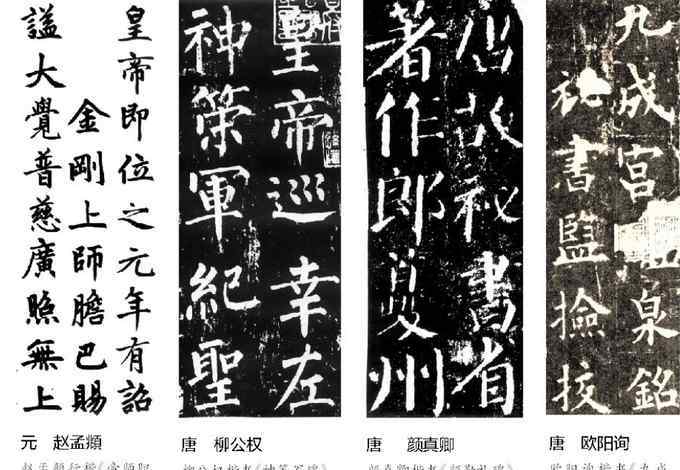 皇帝即位之元年有詔
金剛上師膽巴賜
謚大覺普慈廣照無上
皇帝巡幸左
神策軍紀聖
唐故秘書省
著作郎夔州
九成宮醴泉銘
秘書監撿挍
元 赵孟頫
唐 柳公权
唐 颜真卿
唐 欧阳询